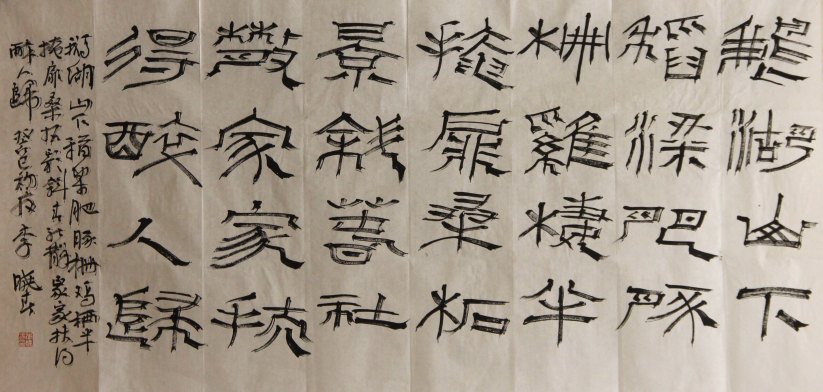 鵝湖山下
稻梁肥豚
栅雞棲半
掩扉桑柘
景斜萅社
散家家扶
得醉人歸
鹅湖山下稻粱肥豚栅鸡栖半
掩扉桑柘影斜春社散家家扶得
醉人歸 癸巳初 李